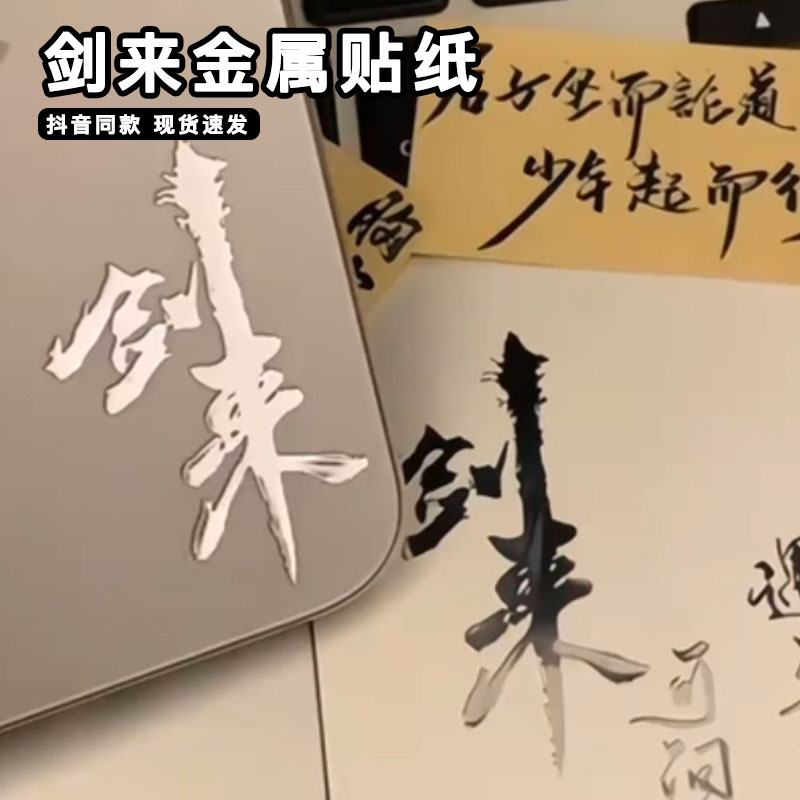 剑来金属贴纸
抖音同款 现货速发
君子坐而論道
少年起而行
剑来
剑来
遇
问